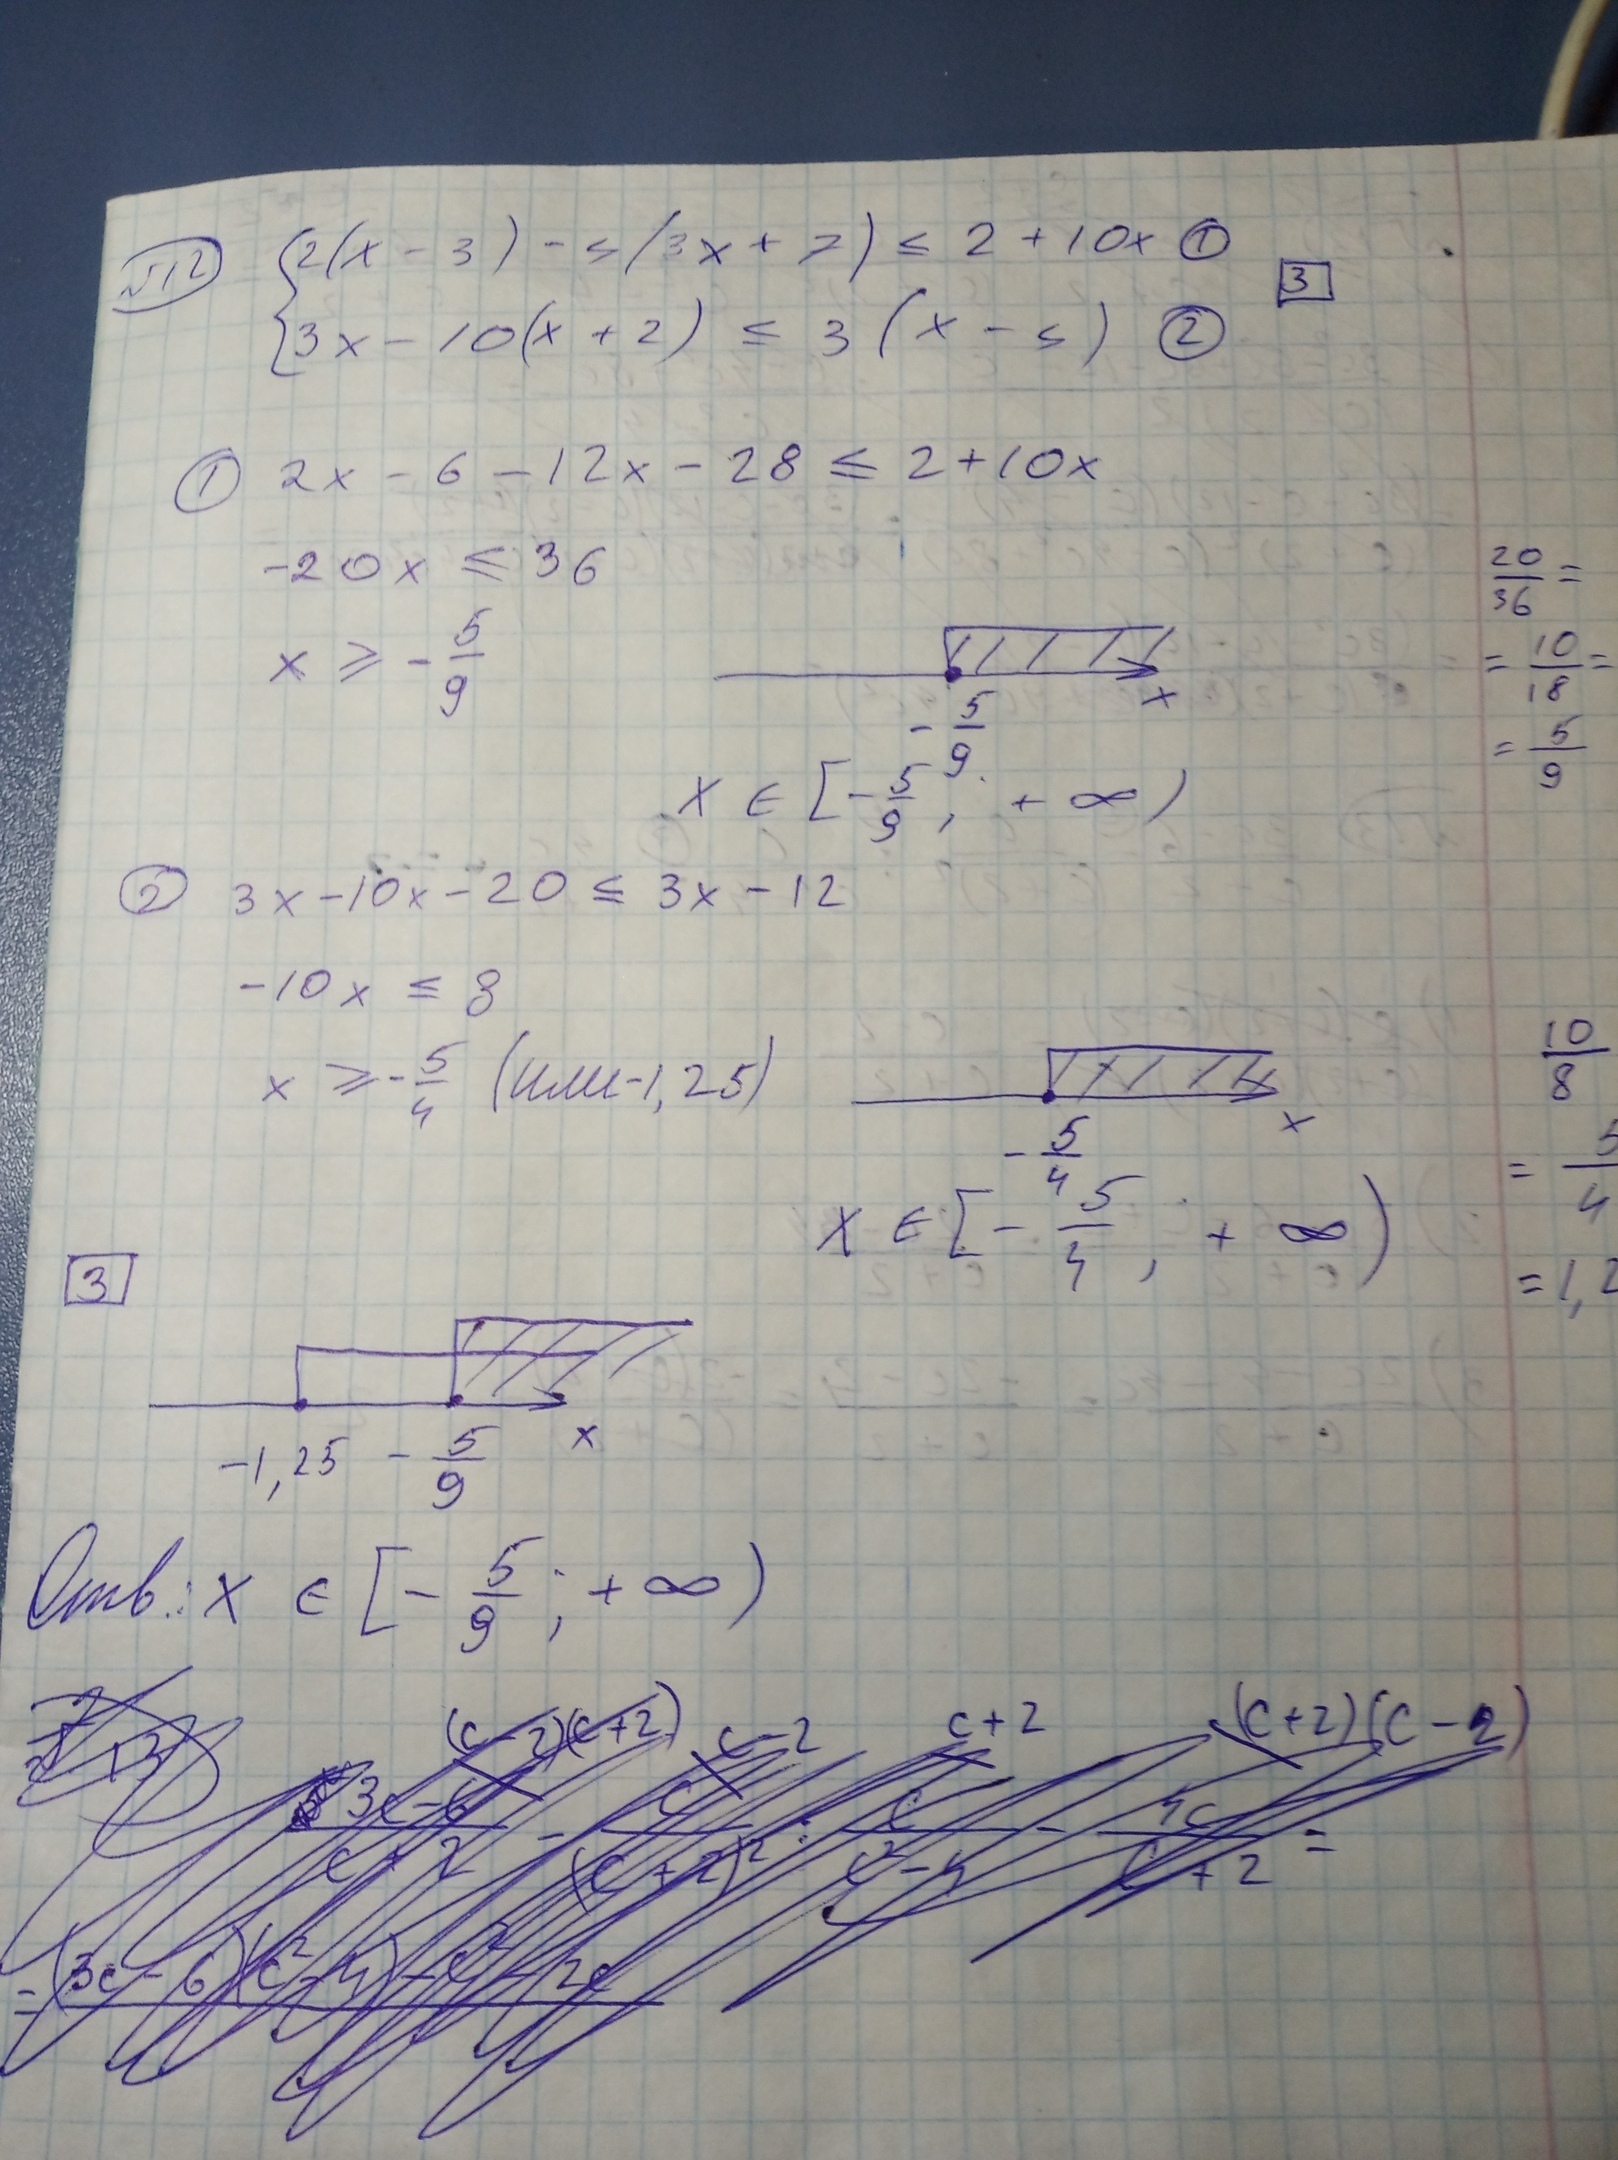 №12 { 2(x - 3) - 4(3x + 7) ≤ 2 + 10x ①
3x - 10(x + 2) ≤ 3(x - 4) ②
3
① 2x - 6 - 12x - 28 ≤ 2 + 10x
-20x ≤ 36
x ≥ -5/9
-5/9 x
x ∈ [-5/9; +∞)
20/36 =
= 10/18 =
= 5/9
② 3x - 10x - 20 ≤ 3x - 12
-10x ≤ 8
x ≥ -5/4 (или -1,25)
-5/4 x
x ∈ [-5/4; +∞)
10/8
= 5/4
= 1,2
3
-1,25 -5/9 x
Отв.: x ∈ [-5/9; +∞)
№13
(c-2)(c+2) c-2 c+2 (c+2)(c-2)
3c-6/c+2 - c/(c+2)² : c/c²-4 - 4c/c+2 =
= (3c-6)(c²-4) - c² - 2c